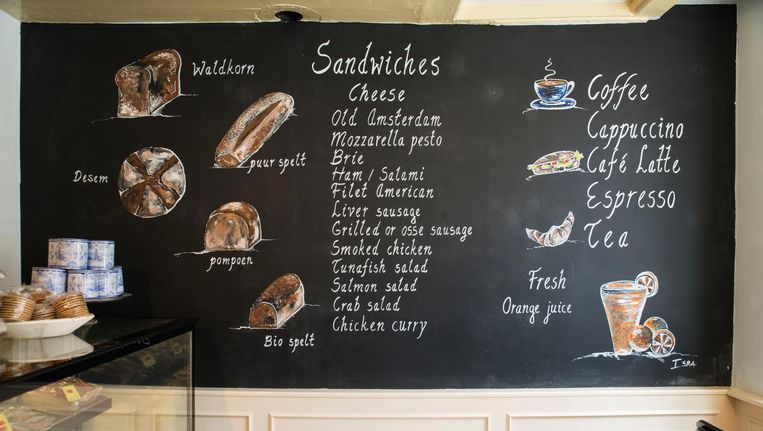 Waldkorn
puur spelt
Desem
pompoen
Bio spelt
Sandwiches
Cheese
Old Amsterdam
Mozzarella pesto
Brie
Ham / Salami
Filet American
Liver sausage
Grilled or osse sausage
Smoked chicken
Tunafish salad
Salmon salad
Crab salad
Chicken curry
Coffee
Cappuccino
Café Latte
Espresso
Tea
Fresh
Orange juice
ISRA